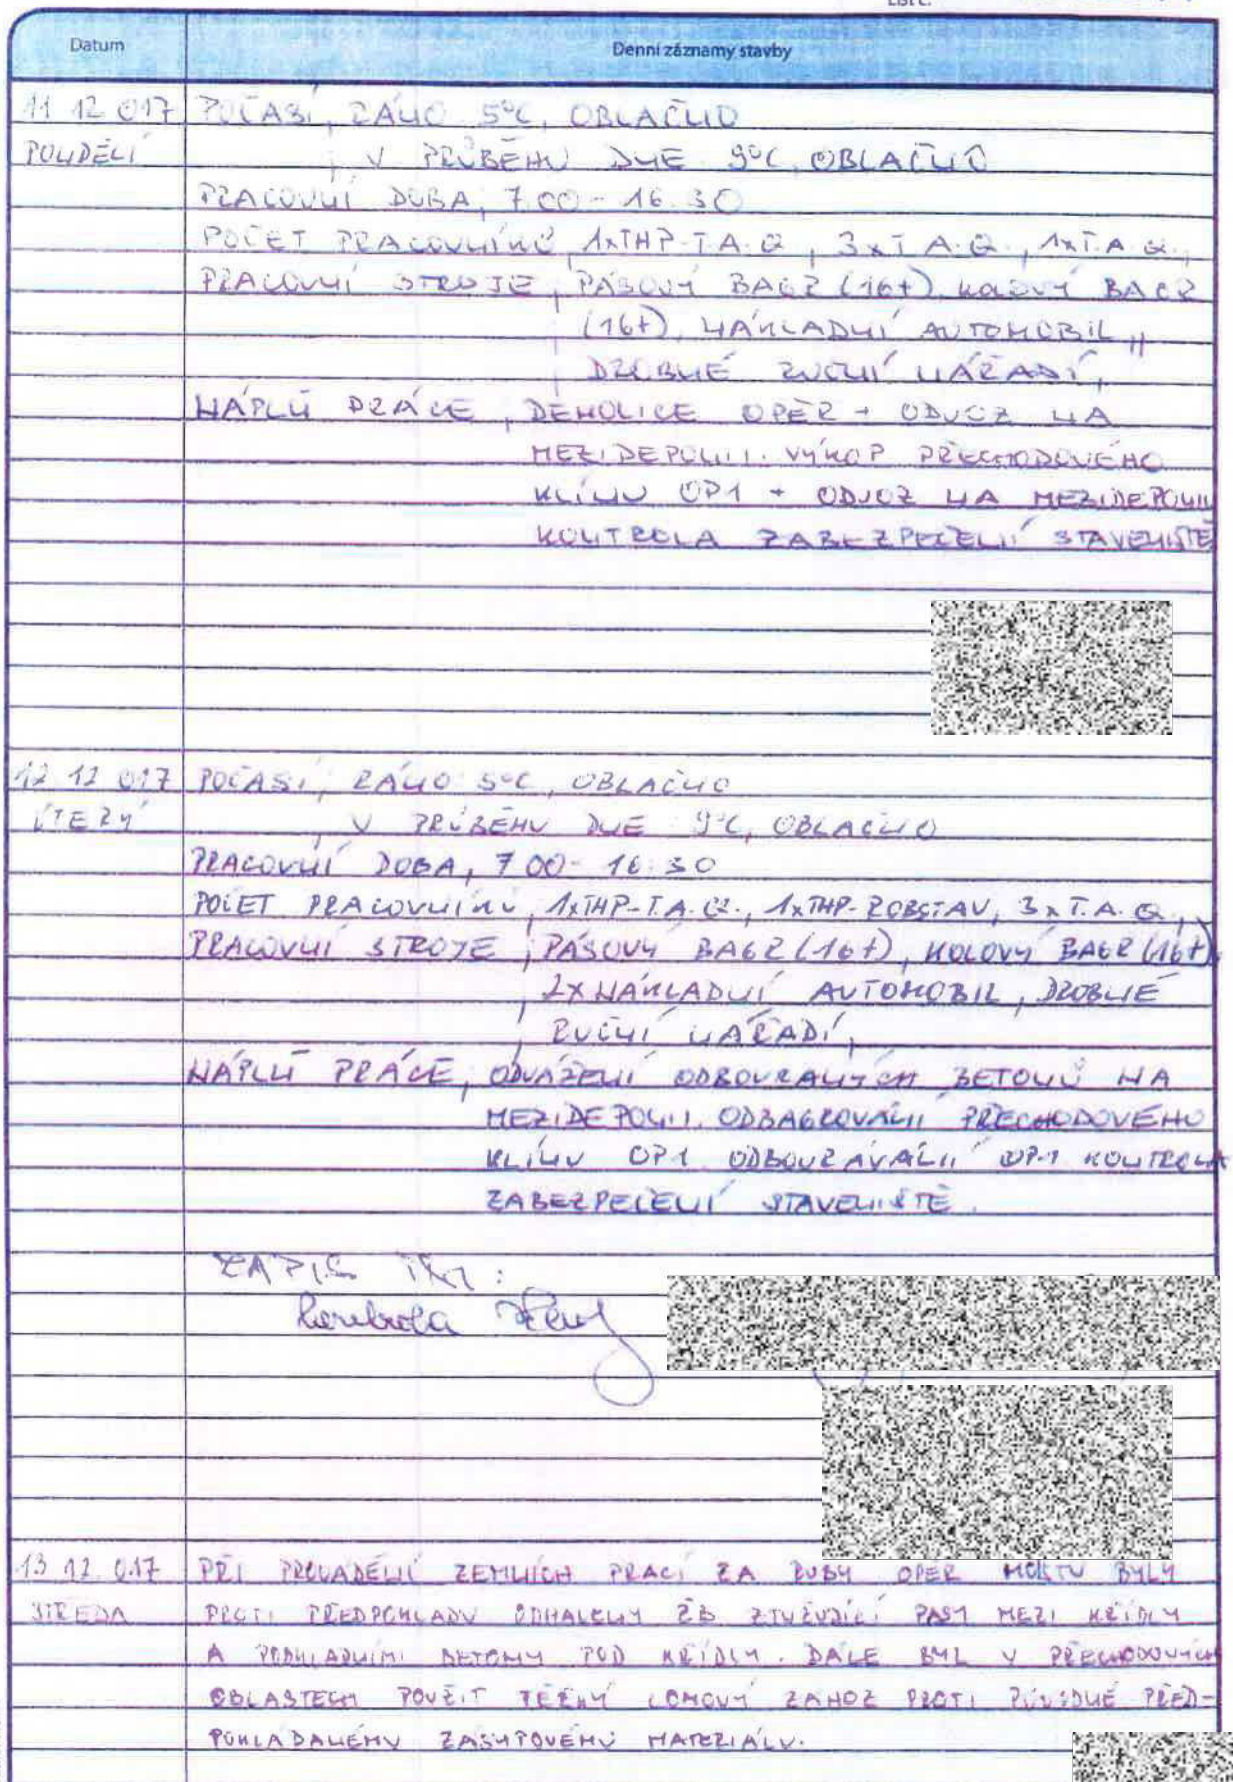 List č.
Datum
Denní záznamy stavby
11 12 017 POČASÍ, RÁNO 5°C, OBLAČNO
PONDĚLÍ , V PRŮBĚHU DNE 9°C, OBLAČNO
PRACOVNÍ DOBA, 7.00 - 16.30
POČET PRACOVNÍKŮ, 1xTHP-T.A.Q., 3xT.A.Q., 1xT.A.Q.,
PRACOVNÍ STROJE, PÁSOVÝ BAGR (16t), KOLOVÝ BAGR
(16t), NÁKLADNÍ AUTOMOBIL,,
DROBNÉ RUČNÍ NÁŘADÍ,
NÁPLŇ PRÁCE, DEMOLICE OPĚR + ODVOZ NA
MEZIDEPONII. VÝKOP PŘECHODOVÉHO
KLÍNU OP1 + ODVOZ NA MEZIDEPONII
KONTROLA ZABEZPEČENÍ STAVENIŠTĚ
12 12 017 POČASÍ, RÁNO 5°C, OBLAČNO
ÚTERÝ , V PRŮBĚHU DNE 9°C, OBLAČNO
PRACOVNÍ DOBA, 7 00 - 16.30
POČET PRACOVNÍKŮ, 1xTHP-T.A.Q., 1xTHP-ROBSTAV, 3xT.A.Q.,
PRACOVNÍ STROJE, PÁSOVÝ BAGR (16t), KOLOVÝ BAGR (16t),
, 2x NÁKLADNÍ AUTOMOBIL, DROBNÉ
, RUČNÍ NÁŘADÍ,
NÁPLŇ PRÁCE, ODVÁŽENÍ ODBOURANÝCH BETONŮ NA
MEZIDEPONII. ODBAGROVÁNÍ PŘECHODOVÉHO
KLÍNU OP1. ODBOURÁVÁNÍ OP1 KONTROLA
ZABEZPEČENÍ STAVENIŠTĚ.
ZÁPIS TDI:
Kontrola
13 12. 017 PŘI PROVÁDĚNÍ ZEMNÍCH PRACÍ ZA RUBY OPĚR MOSTU BYLY
STŘEDA PROTI PŘEDPOKLADU ODHALENY ŽB ZTUŽUJÍCÍ PASY MEZI KŘÍDLY
A PODKLADNÍMI BETONY POD KŘÍDLY. DÁLE BYL V PŘECHODOVÝCH
OBLASTECH POUŽIT TĚŽKÝ LOMOVÝ ZÁHOZ PROTI PŮVODNĚ PŘED-
POKLÁDANÉMU ZÁSYPOVÉMU MATERIÁLU.